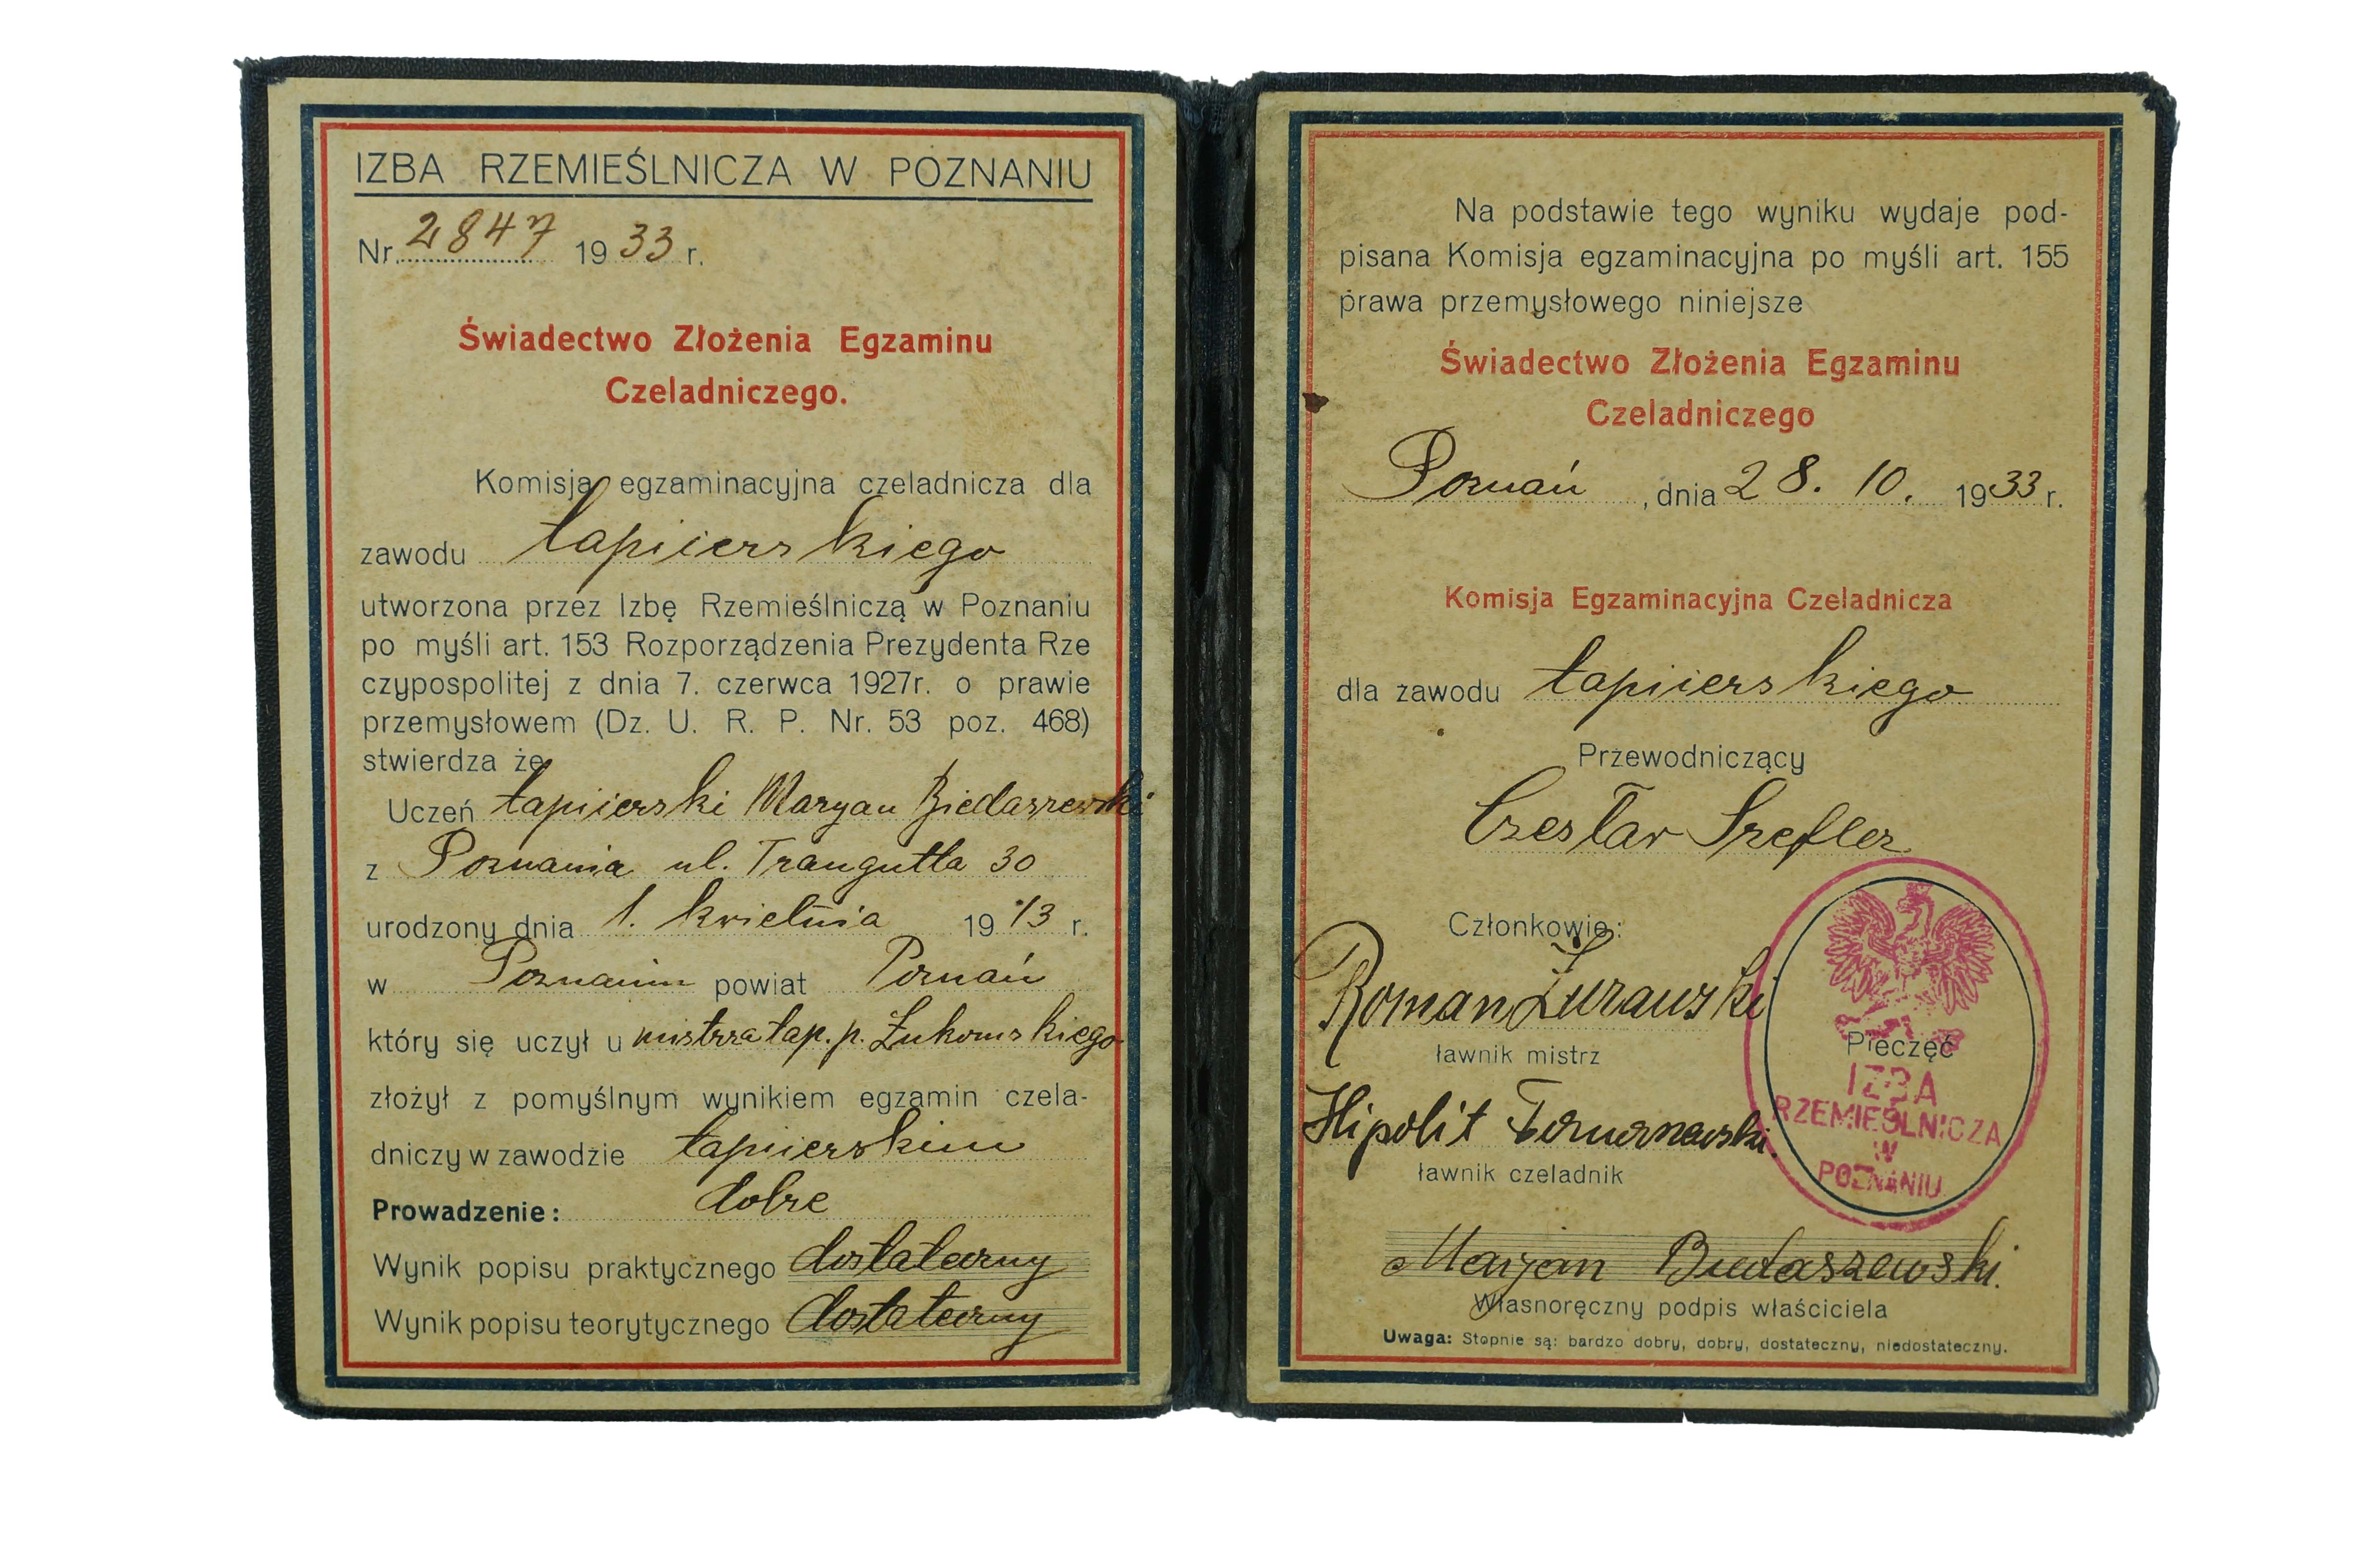 IZBA RZEMIEŚLNICZA W POZNANIU
Nr. 2847 1933 r.
Świadectwo Złożenia Egzaminu
Czeladniczego.
Komisja egzaminacyjna czeladnicza dla
zawodu tapicerskiego
utworzona przez Izbę Rzemieślniczą w Poznaniu
po myśli art. 153 Rozporządzenia Prezydenta Rze
czypospolitej z dnia 7. czerwca 1927r. o prawie
przemysłowem (Dz. U. R. P. Nr. 53 poz. 468)
stwierdza że
Uczeń tapicerski Maryan Biedaszewski
z Poznania ul. Traugutta 30
urodzony dnia 1. kwietnia 1913 r.
w Poznaniu powiat Poznań
który się uczył u mistrza tap. p. Żukowskiego
złożył z pomyślnym wynikiem egzamin czela-
dniczy w zawodzie tapicerskim
Prowadzenie: dobre
Wynik popisu praktycznego dostateczny
Wynik popisu teorytycznego dostateczny
Na podstawie tego wyniku wydaje pod-
pisana Komisja egzaminacyjna po myśli art. 155
prawa przemysłowego niniejsze
Świadectwo Złożenia Egzaminu
Czeladniczego
Poznań, dnia 28. 10. 1933 r.
Komisja Egzaminacyjna Czeladnicza
dla zawodu tapicerskiego
Przewodniczący
Czesław Szefler
Członkowie:
Roman Żurawski
ławnik mistrz
Hipolit
ławnik czeladnik
Pieczęć
IZBA
RZEMIEŚLNICZA
W
POZNANIU
Marjan Biedaszewski.
Własnoręczny podpis właściciela
Uwaga: Stopnie są: bardzo dobry, dobry, dostateczny, niedostateczny.